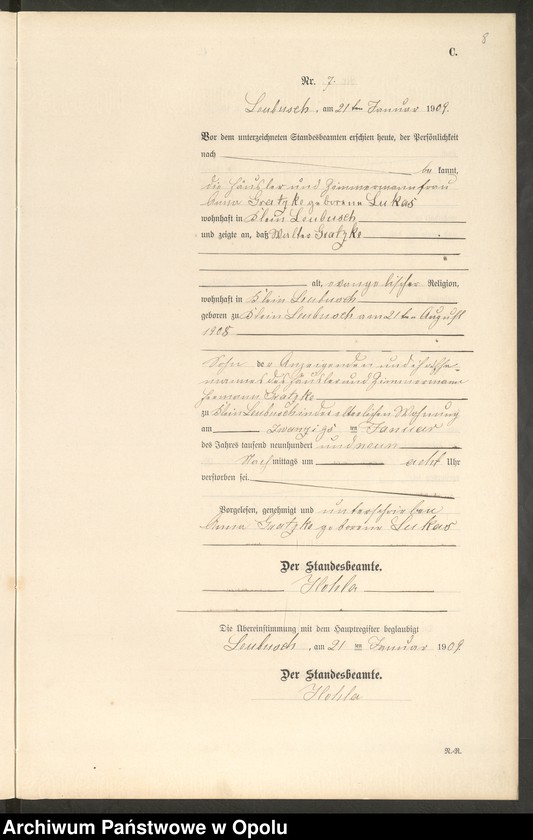 8
C.
Nr. 7
Leubusch, am 21ten Januar 1909.
Vor dem unterzeichneten Standesbeamten erschien heute, der Persönlichkeit
nach
be kannt,
die Häusler und Zimmermannfrau
Anna Gratzke geborene Lukas
wohnhaft in Klein Leubusch
und zeigte an, daß Walter Gratzke
alt, evangelischer Religion,
wohnhaft in Klein Leubusch
geboren zu Klein Leubusch am 21ten August
1908
Sohn der Anzeigenden und ihres Ehe-
mannes des Häusler und Zimmermann
Hermann Gratzke
zu Klein Leubusch in der elterlichen Wohnung
am Zwanzigsten Januar
des Jahres tausend neunhundert und neun
Nachmittags um acht Uhr
verstorben sei.
Vorgelesen, genehmigt und unterschrieben
Anna Gratzke geborene Lukas
Der Standesbeamte.
Hohla
Die Übereinstimmung mit dem Hauptregister beglaubigt
Leubusch, am 21ten Januar 1909.
Der Standesbeamte.
Hohla
R.-R.
Archiwum Państwowe w Opolu